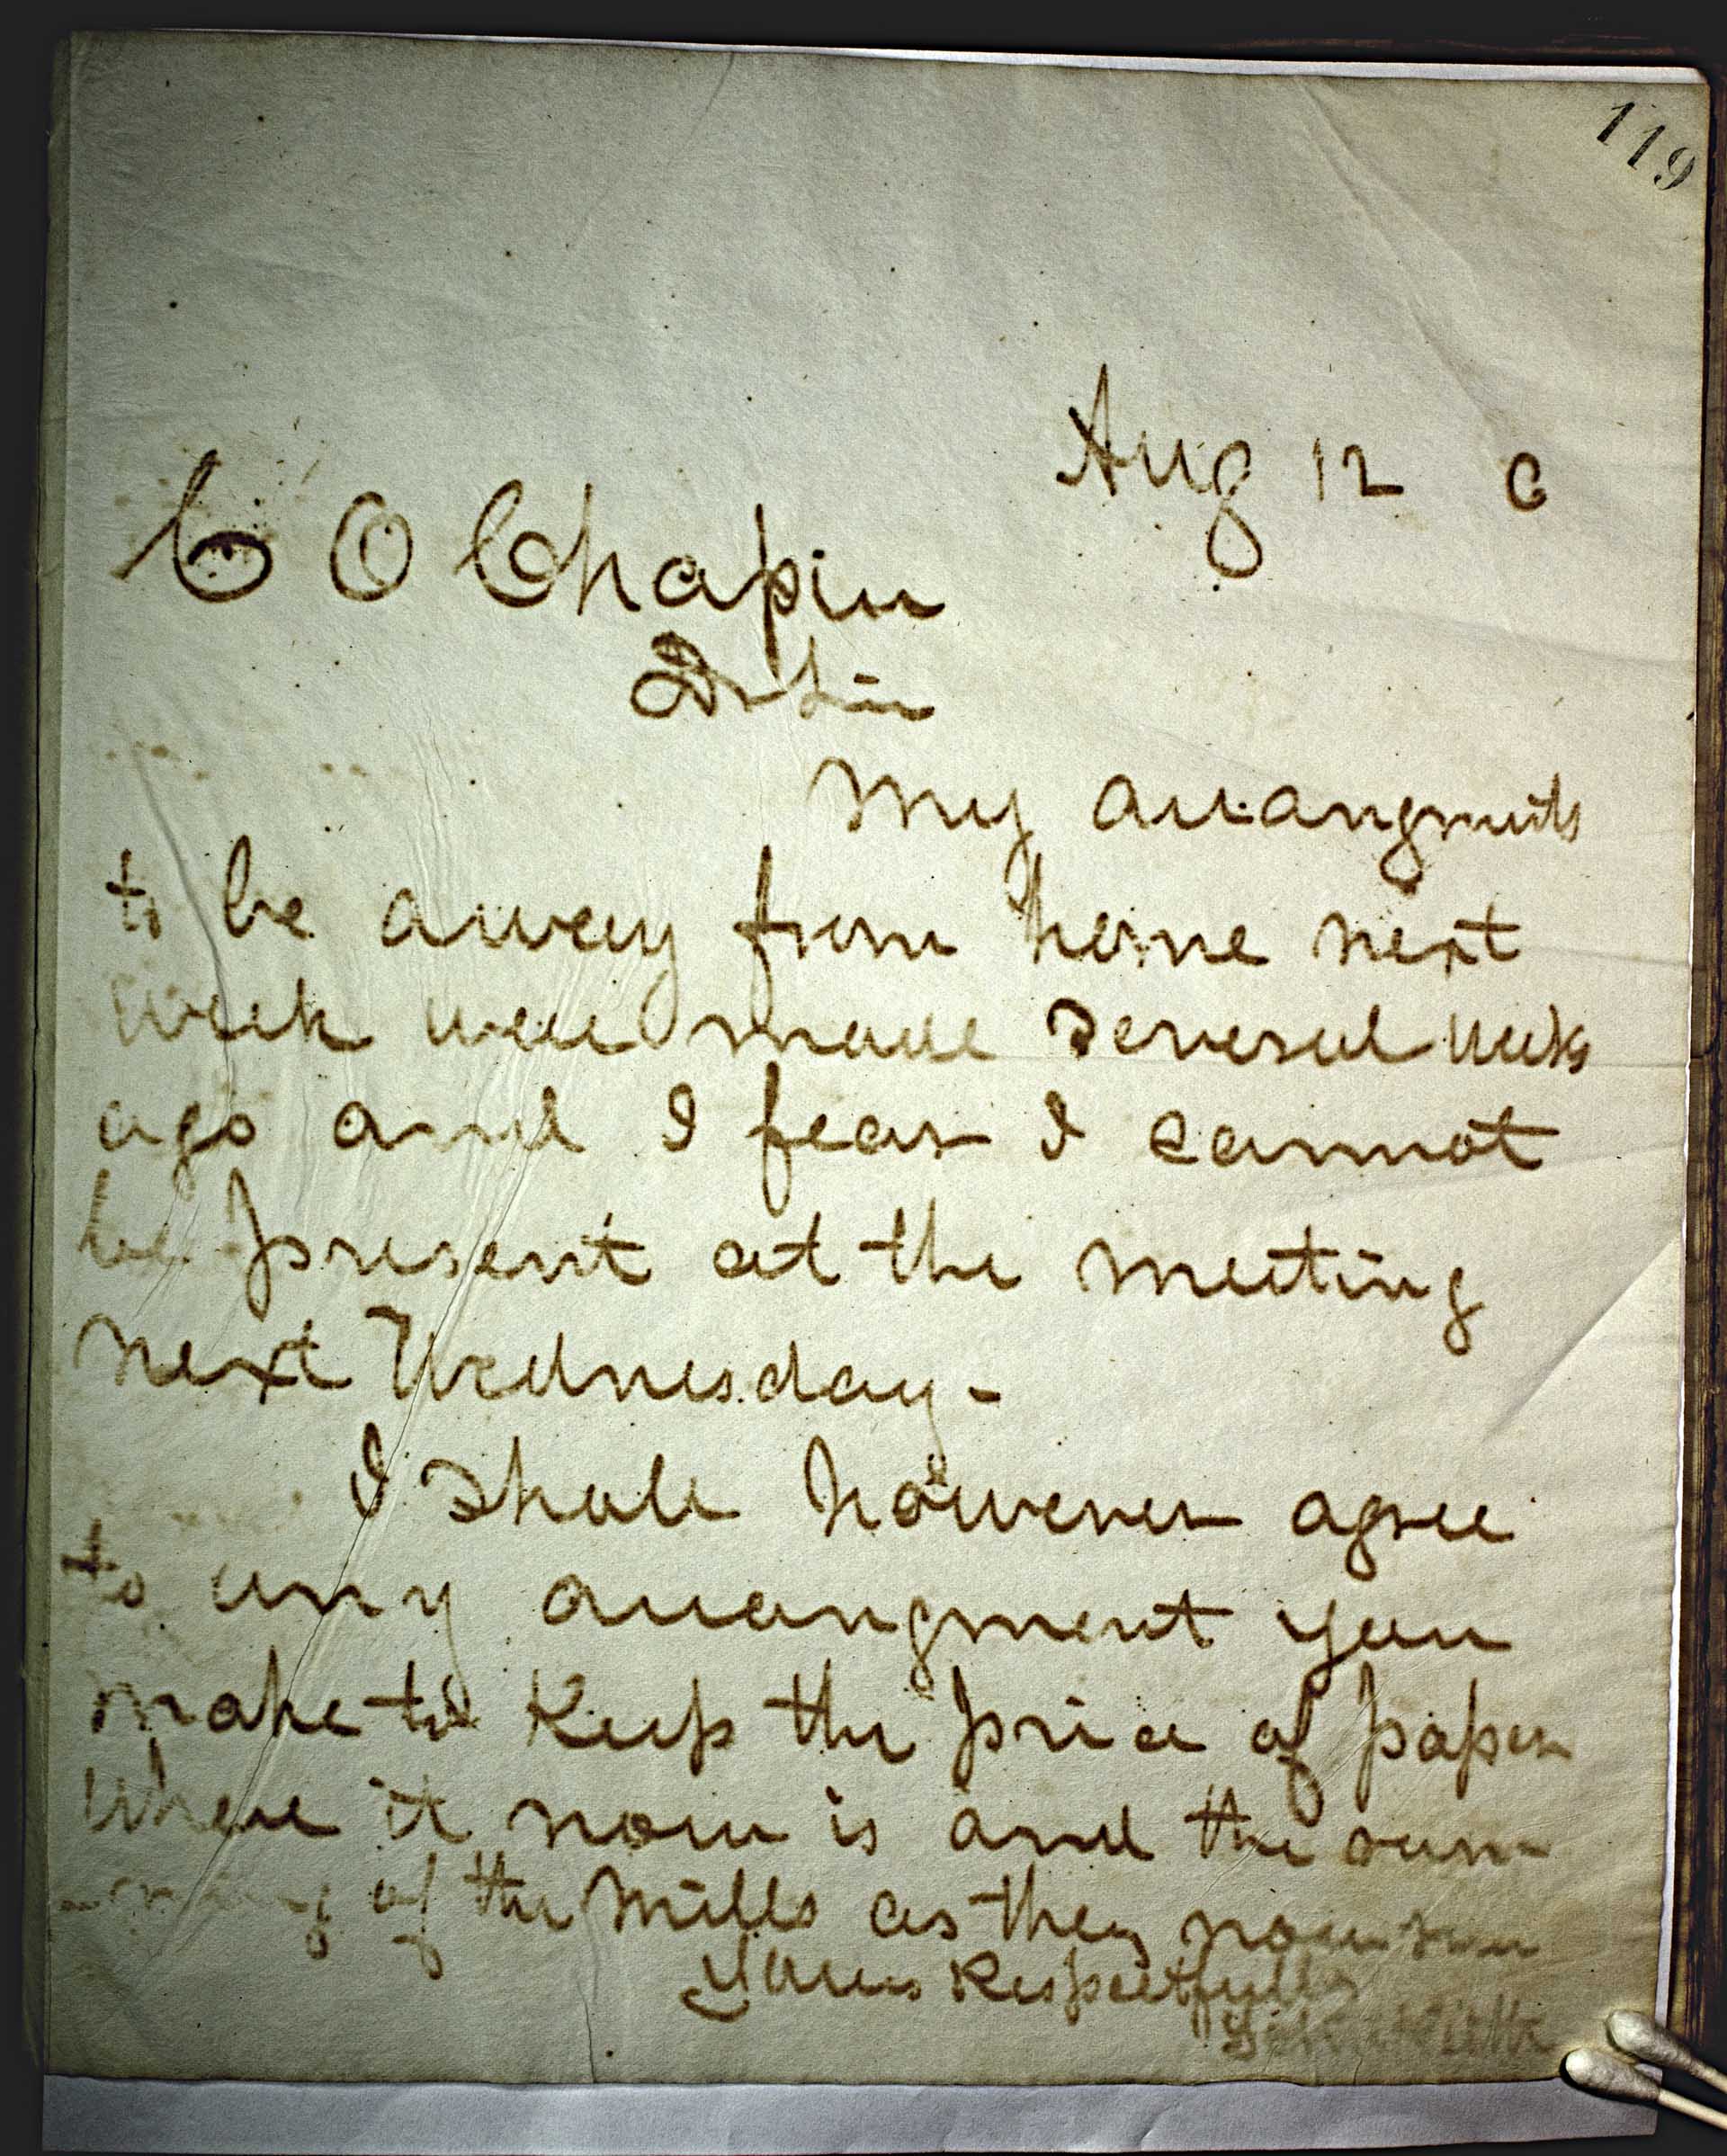 119
Aug 12 0
C O Chapin
Dr Sir
My arrangments
to be away from home next
week were made several weeks
ago and I fear I cannot
be present at the meeting
next Wednesday-
I shall however agree
to any arrangment you
make to Keep the price of paper
where it now is and the run-
of the Mills as they now run
Yours Respectfully